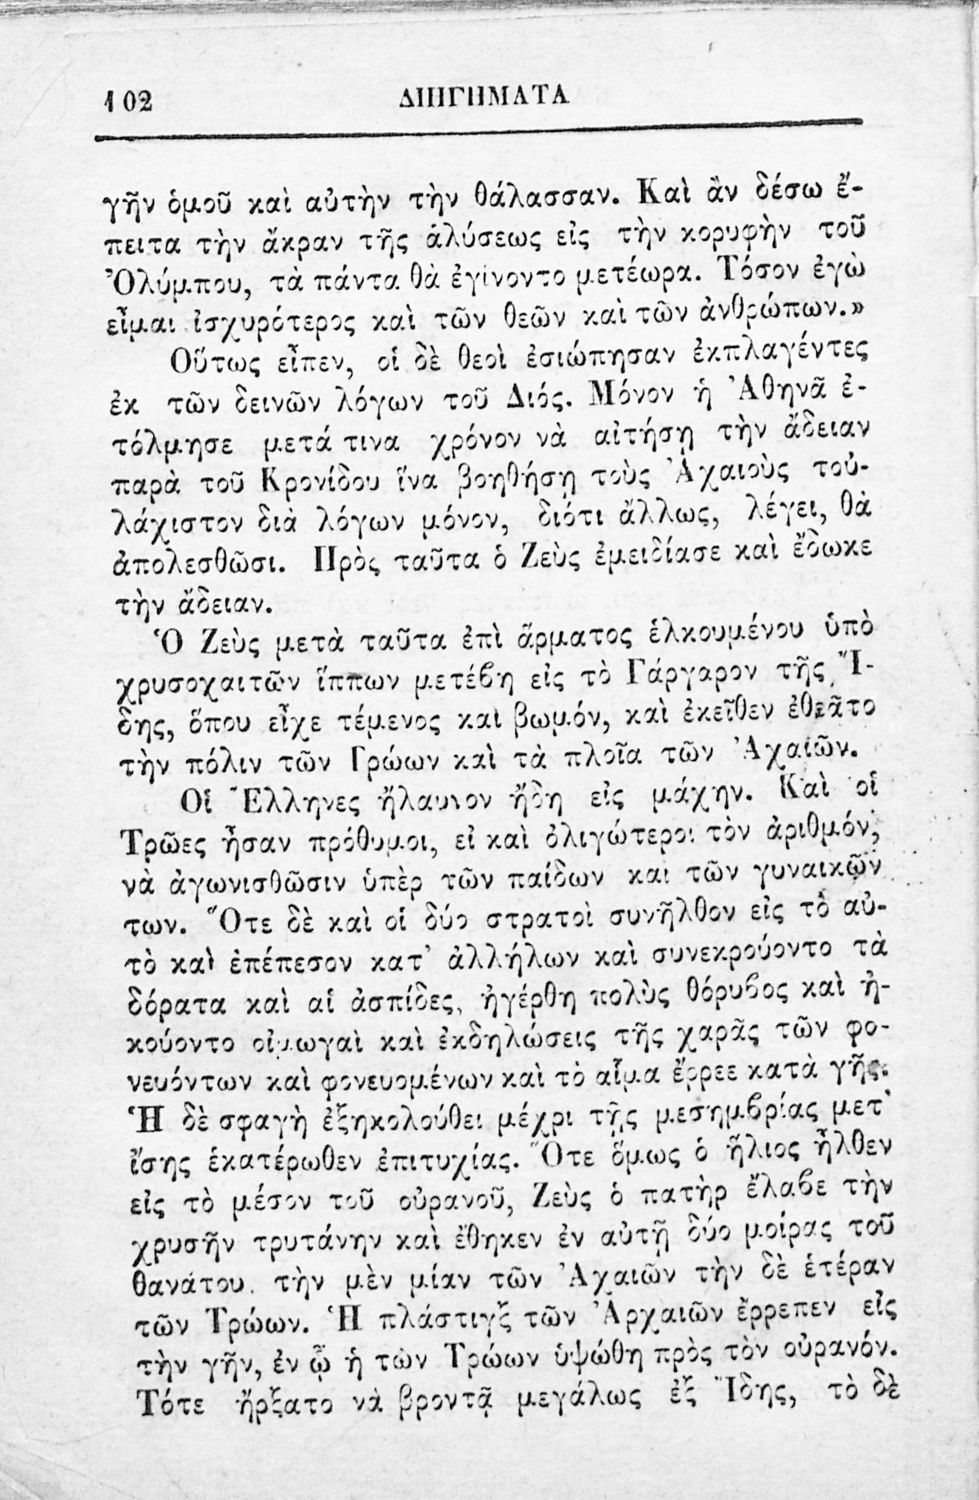 102 ΔΙΗΓΗΜΑΤΑ
γῆν ὁμοῦ καὶ αὐτὴν τὴν θάλασσαν. Καὶ ἂν δέσω ἔ-
πειτα τὴν ἄκραν τῆς ἁλύσεως εἰς τὴν κορυφὴν τοῦ
Ὀλύμπου, τὰ πάντα θὰ ἐγίνοντο μετέωρα. Τόσον ἐγὼ
εἶμαι ἰσχυρότερος καὶ τῶν θεῶν καὶ τῶν ἀνθρώπων.»
Οὕτως εἶπεν, οἱ δὲ θεοὶ ἐσιώπησαν ἐκπλαγέντες
ἐκ τῶν δεινῶν λόγων τοῦ Διός. Μόνον ἡ Ἀθηνᾶ ἐ-
τόλμησε μετά τινα χρόνον νὰ αἰτήσῃ τὴν ἄδειαν
παρὰ τοῦ Κρονίδου ἵνα βοηθήσῃ τοὺς Ἀχαιοὺς τοὐ-
λάχιστον διὰ λόγων μόνον, διότι ἄλλως, λέγει, θὰ
ἀπολεσθῶσι. Πρὸς ταῦτα ὁ Ζεὺς ἐμειδίασε καὶ ἔδωκε
τὴν ἄδειαν.
Ὁ Ζεὺς μετὰ ταῦτα ἐπὶ ἅρματος ἑλκουμένου ὑπὸ
χρυσοχαιτῶν ἵππων μετέβη εἰς τὸ Γάργαρον τῆς Ἴ-
δης, ὅπου εἶχε τέμενος καὶ βωμόν, καὶ ἐκεῖθεν ἐθεᾶτο
τὴν πόλιν τῶν Τρώων καὶ τὰ πλοῖα τῶν Ἀχαιῶν.
Οἱ Ἕλληνες ἤλαυνον ἤδη εἰς μάχην. Καὶ οἱ
Τρῶες ἦσαν πρόθυμοι, εἰ καὶ ὀλιγώτεροι τὸν ἀριθμόν,
νὰ ἀγωνισθῶσιν ὑπὲρ τῶν παίδων καὶ τῶν γυναικῶν
των. Ὅτε δὲ καὶ οἱ δύο στρατοὶ συνῆλθον εἰς τὸ αὐ-
τὸ καὶ ἐπέπεσον κατ' ἀλλήλων καὶ συνεκρούοντο τὰ
δόρατα καὶ αἱ ἀσπίδες, ἠγέρθη πολὺς θόρυβος καὶ ἠ-
κούοντο οἰμωγαὶ καὶ ἐκδηλώσεις τῆς χαρᾶς τῶν φο-
νευόντων καὶ φονευομένων καὶ τὸ αἷμα ἔρρεε κατὰ γῆς.
Ἡ δὲ σφαγὴ ἐξηκολούθει μέχρι τῆς μεσημβρίας μετ'
ἴσης ἑκατέρωθεν ἐπιτυχίας. Ὅτε ὅμως ὁ ἥλιος ἦλθεν
εἰς τὸ μέσον τοῦ οὐρανοῦ, Ζεὺς ὁ πατὴρ ἔλαβε τὴν
χρυσῆν τρυτάνην καὶ ἔθηκεν ἐν αὐτῇ δύο μοίρας τοῦ
θανάτου, τὴν μὲν μίαν τῶν Ἀχαιῶν τὴν δὲ ἑτέραν
τῶν Τρώων. Ἡ πλάστιγξ τῶν Ἀρχαιῶν ἔρρεπεν εἰς
τὴν γῆν, ἐν ᾧ ἡ τῶν Τρώων ὑψώθη πρὸς τὸν οὐρανόν.
Τότε ἤρξατο νὰ βροντᾷ μεγάλως ἐξ Ἴδης, τὸ δὲ